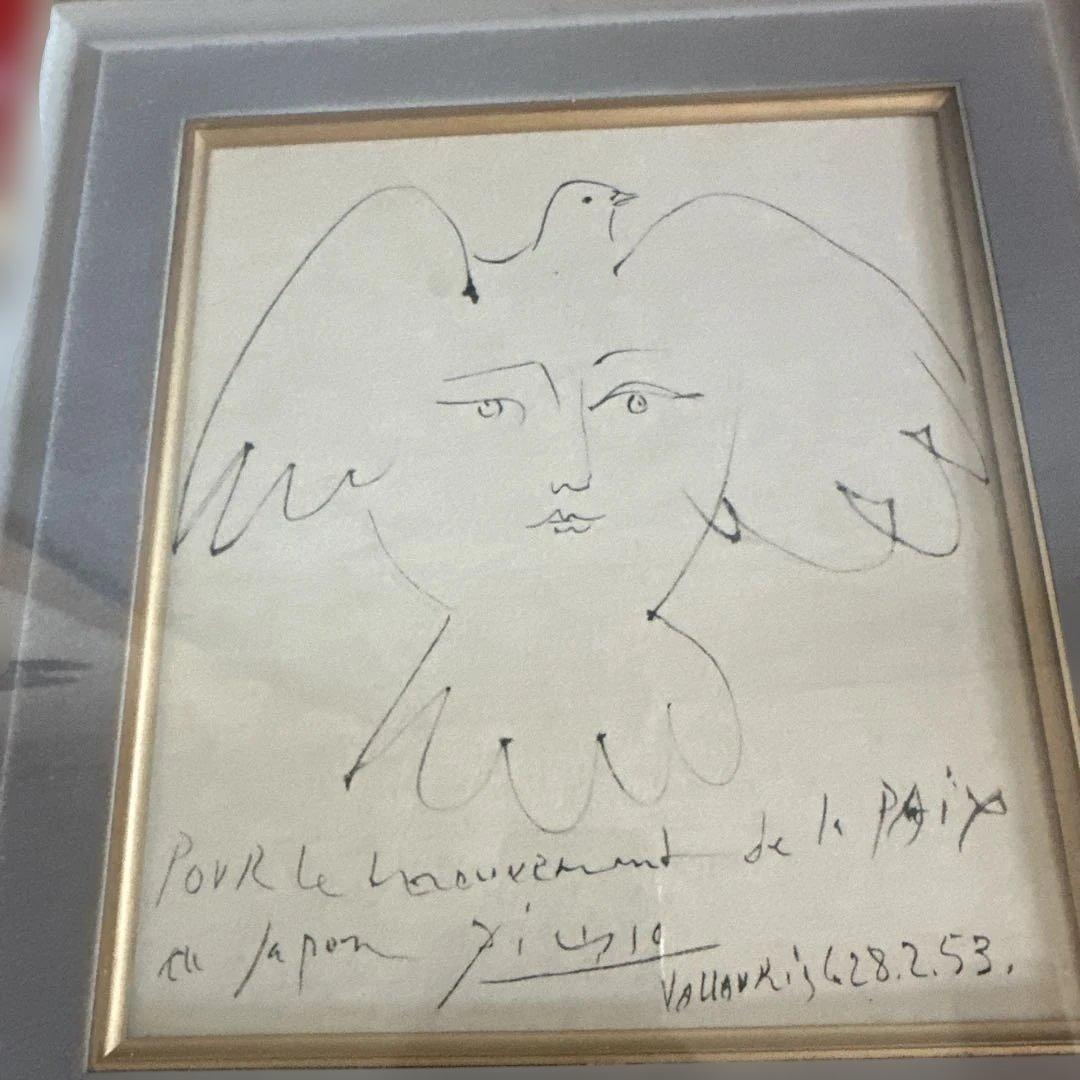 POUR le mouvement de la PAix
au Japon Picasso
VALLAURiS le 28.2.53.